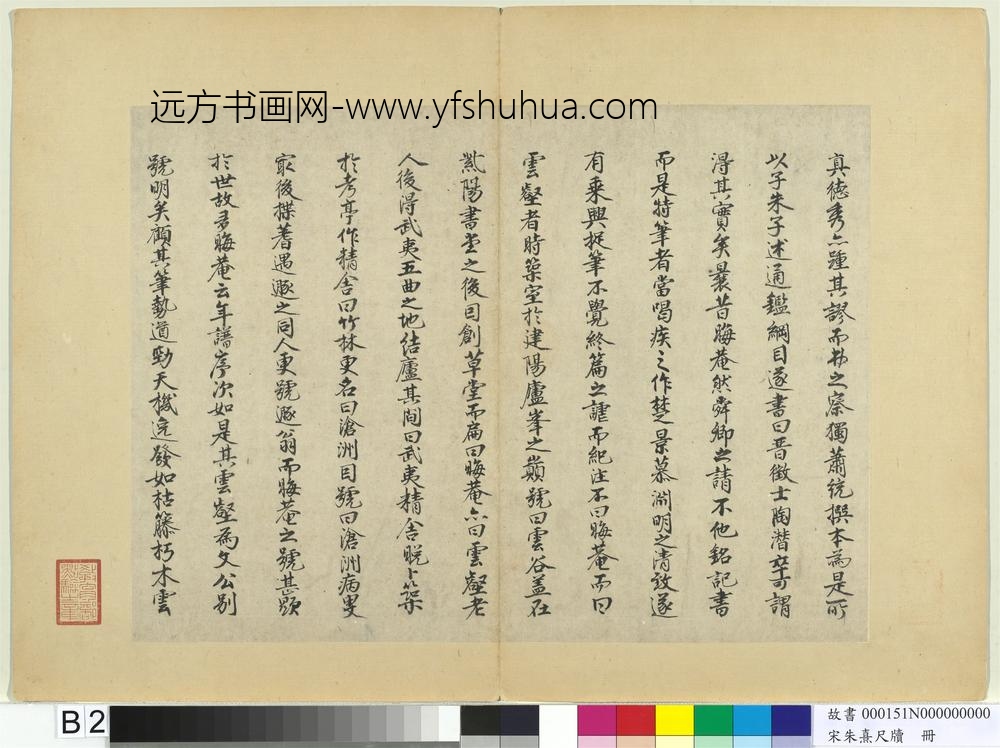 远方书画网-www.yfshuhua.com
真德秀亦踵其謬而弗之察獨蕭統撰本為是所
以子朱子述通鑑綱目遂書曰晉徵士陶潛卒可謂
得其實矣曩昔晦菴然舜卿之請不他銘記書
而是特筆者當喝疾之作楚景慕淵明之清致遂
有乘興捉筆不覺終篇之謔而紀注不曰晦菴而曰
雲壑者時築室於建陽廬峯之巔號曰雲谷蓋在
紫陽書堂之後自創草堂而扁曰晦菴亦曰雲壑老
人後得武夷五曲之地結廬其間曰武夷精舍晚卜築
於考亭作精舍曰竹林更名曰滄洲自號曰滄洲病叟
最後揲蓍遇遯之同人更號遯翁而晦菴之號甚顯
於世故君晦菴云年譜序次如是其雲壑為文公別
號明矣顧其筆勢遒勁天機迅發如枯藤朽木雲
B2
故書 000151N000000000
宋朱熹尺牘 冊